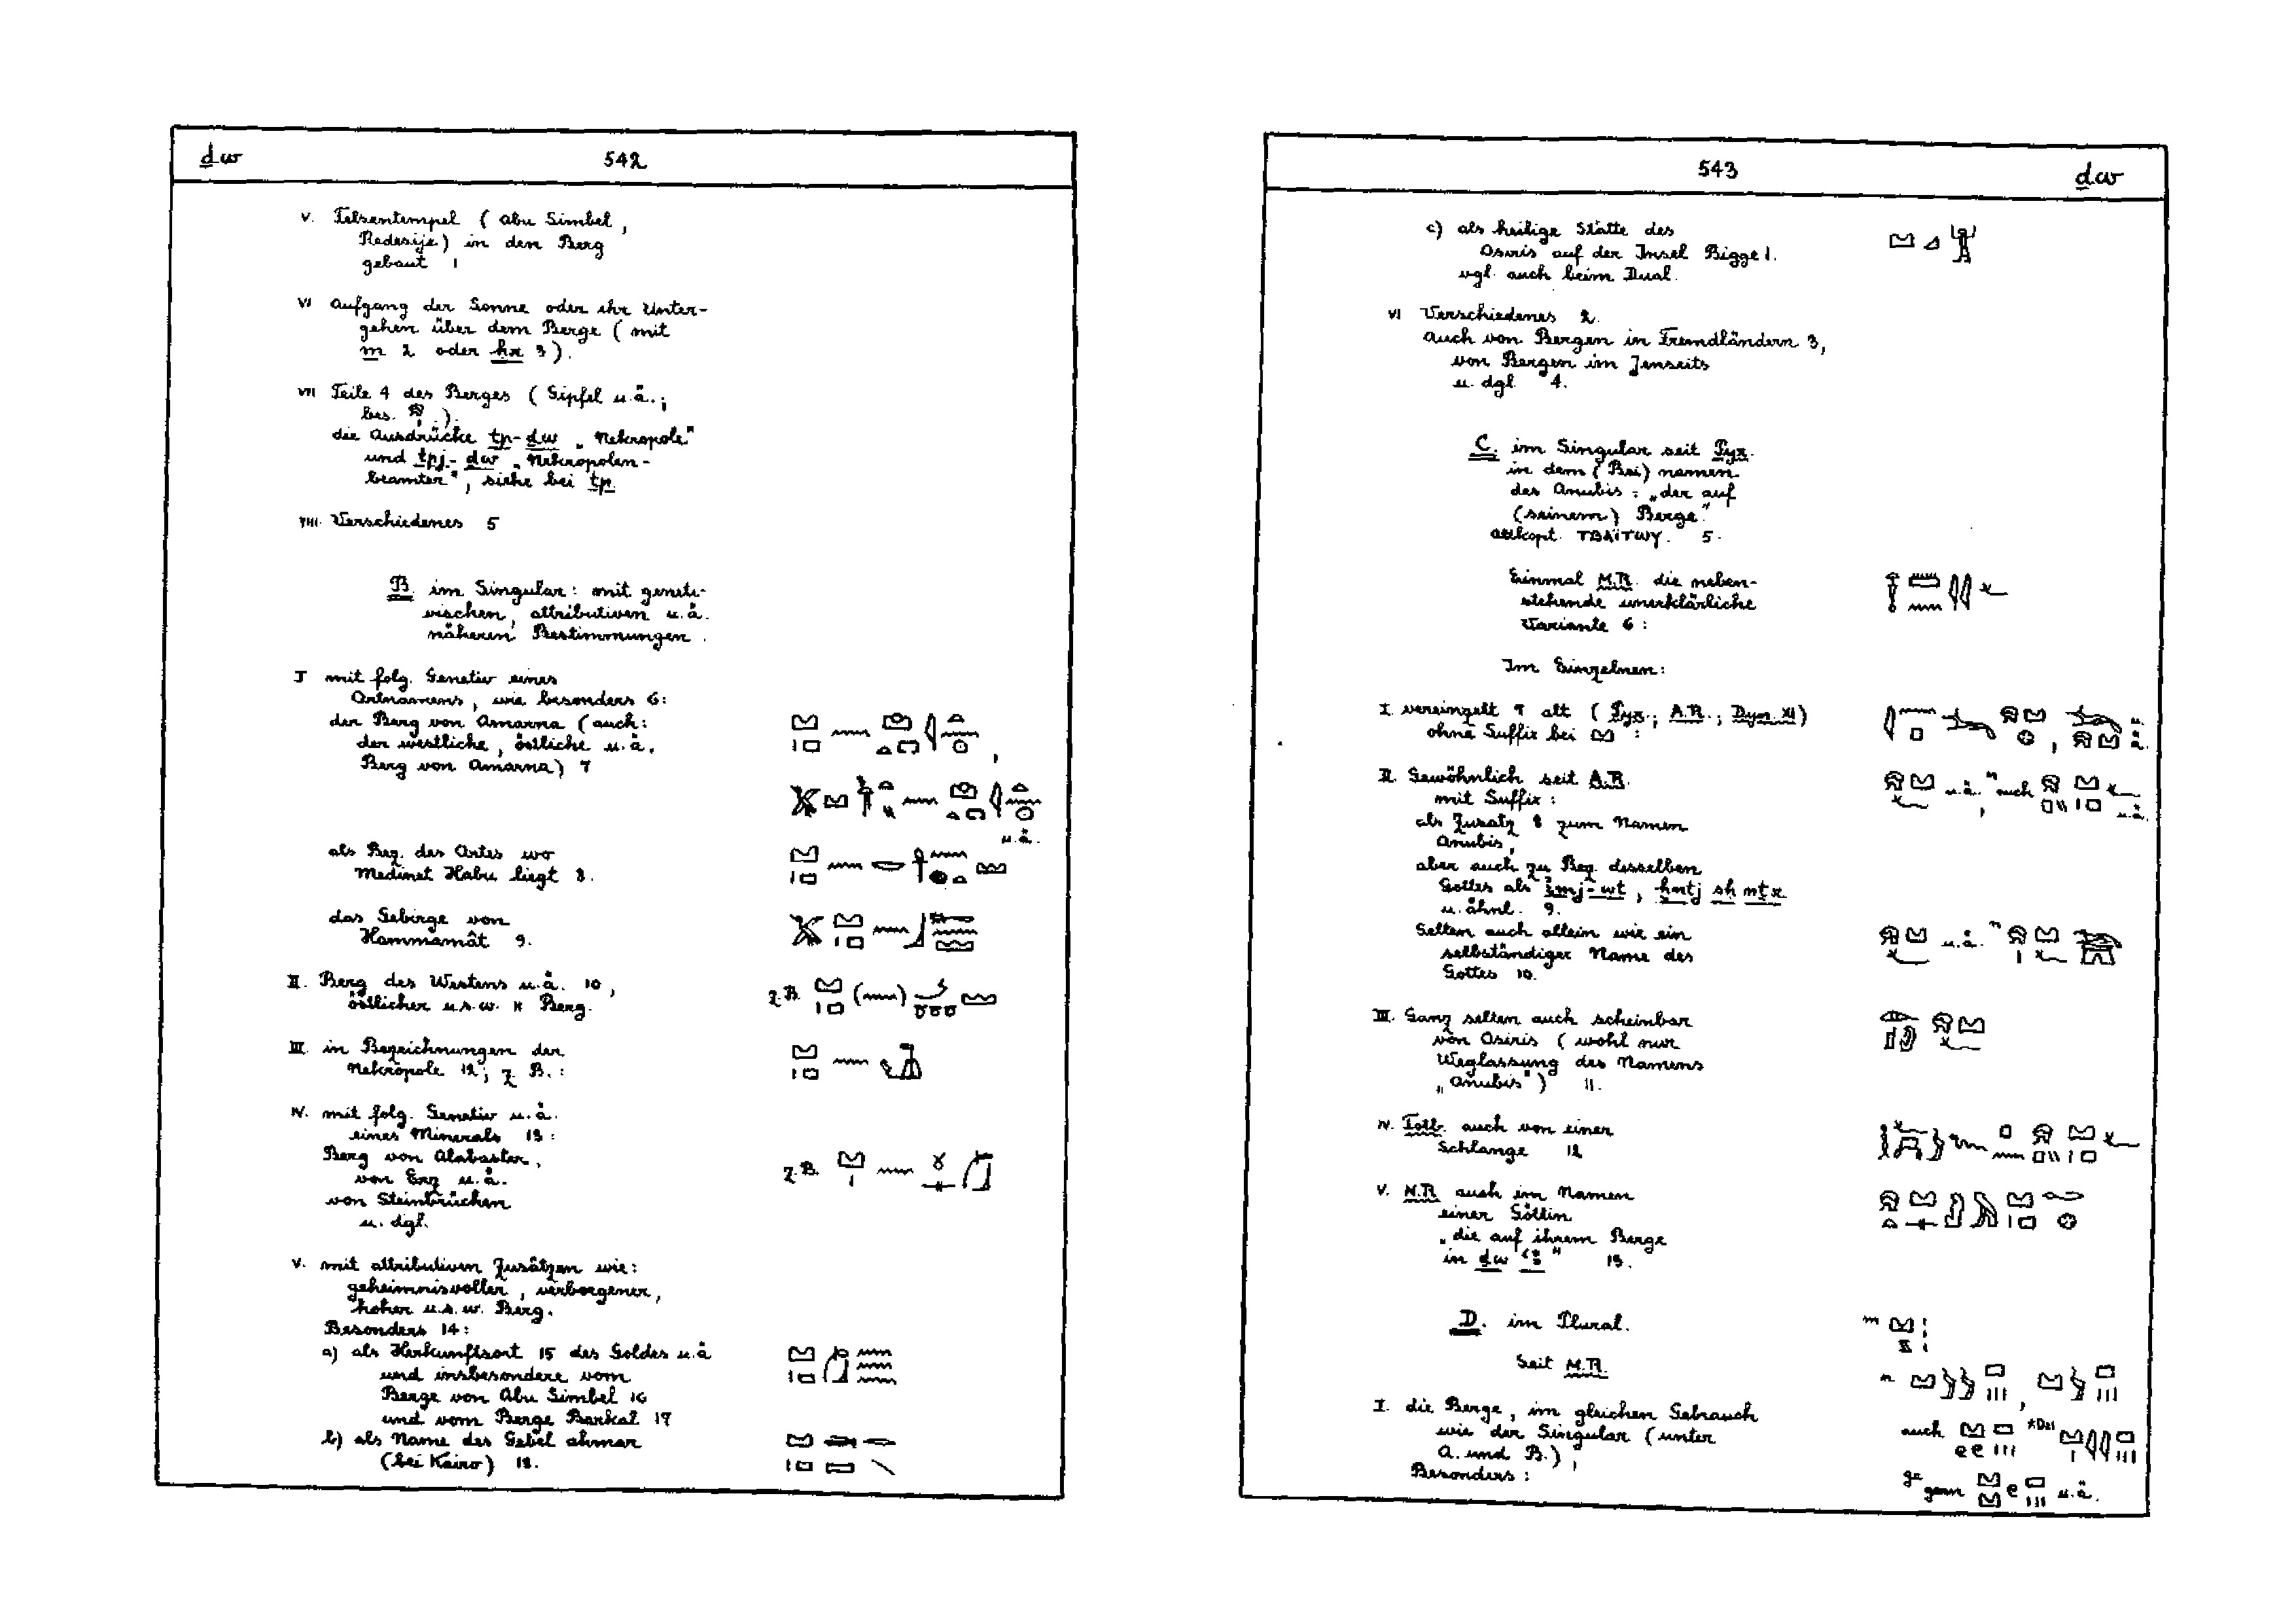 ḏw 542
V. Felsentempel (Abu Simbel,
Redesije) in den Berg
gebaut 1
VI Aufgang der Sonne oder ihr Unter-
gehen über dem Berge (mit
m 2 oder ḥr 3).
VII Teile 4 des Berges (Gipfel u.ä.;
bes. ).
die Ausdrücke tp-ḏw „Nekropole"
und tpj-ḏw „Nekropolen-
beamter", siehe bei tp.
VIII. Verschiedenes 5
B. im Singular: mit geneti-
vischen, attributiven u.ä.
näheren Bestimmungen.
I mit folg. Genetiv eines
Ortsnamens, wie besonders 6:
der Berg von Amarna (auch:
der westliche, östliche u.ä.
Berg von Amarna) 7
u.ä.
als Bez. des Ortes wo
Medinet Habu liegt 8.
das Gebirge von
Hammamât 9.
II. Berg des Westens u.ä. 10,
östlicher u.s.w. 11 Berg.
z.B.
III. in Bezeichnungen der
Nekropole 12; z.B.:
IV. mit folg. Genetiv u.ä.
eines Minerals 13:
Berg von Alabaster,
von Erz u.ä.
z.B.
von Steinbrüchen
u. dgl.
V. mit attributiven Zusätzen wie:
geheimnisvoller, verborgener,
hoher u.s.w. Berg.
Besonders 14:
a) als Herkunftsort 15 des Goldes u.ä
und insbesondere vom
Berge von Abu Simbel 16
und vom Berge Barkal 17
b) als Name des Gebel ahmar
(bei Kairo) 18.
543 ḏw
c) als heilige Stätte des
Osiris auf der Insel Bigge 1.
vgl. auch beim Dual.
VI Verschiedenes 2.
Auch von Bergen in Fremdländern 3,
von Bergen im Jenseits
u. dgl. 4.
C. im Singular seit Pyr.
in dem (Bei) namen
des Anubis: „der auf
(seinem) Berge"
altkopt. ΤΒΑΪΤΩΥ. 5.
Einmal M.R. die neben-
stehende unerklärliche
Variante 6:
Im Einzelnen:
I. vereinzelt 7 alt (Pyr.; A.R.; Dyn. XI)
ohne Suffix bei :
u. ä.
II. Gewöhnlich seit A.R.
mit Suffix:
u.ä., auch u.ä.
als Zusatz 8 zum Namen
Anubis,
aber auch zu Bez. desselben
Gottes als ỉmj-wt, ḫntj sḥ nṯr
u. ähnl. 9.
Selten auch allein wie ein
selbständiger Name des
Gottes 10.
u.ä.
III. Ganz selten auch scheinbar
von Osiris (wohl nur
Weglassung des Namens
„Anubis") 11.
IV. Totb. auch von einer
Schlange 12
V. N.R. auch im Namen
einer Göttin
„die auf ihrem Berge
in ḏw ꜥꜣ" 13.
D. im Plural.
Seit M.R.
I. die Berge, im gleichen Gebrauch
wie der Singular (unter
A. und B.),
Besonders:
auch
gern u.ä.